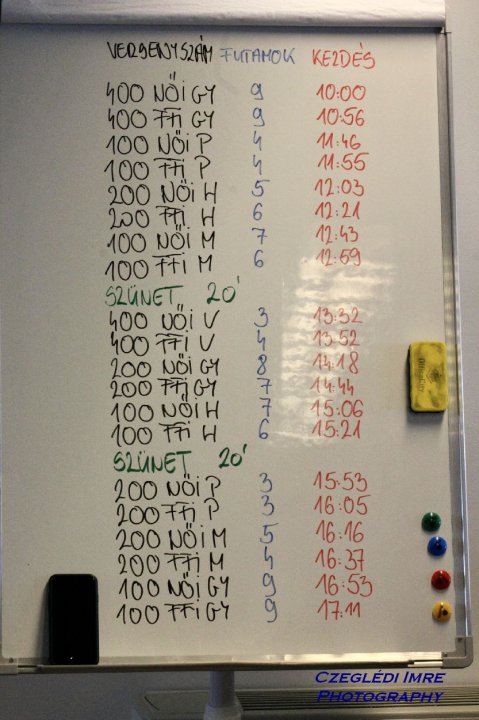 VERSENYSZÁM FUTAMOK KEZDÉS
400 NŐI GY 9 10:00
400 FFI GY 9 10:56
100 NŐI P 4 11:46
100 FFI P 4 11:55
200 NŐI H 5 12:03
200 FFI H 6 12:21
100 NŐI M 7 12:43
100 FFI M 6 12:59
SZÜNET 20'
400 NŐI V 3 13:32
400 FFI V 4 13:52
200 NŐI GY 8 14:18
200 FFI GY 7 14:44
100 NŐI H 7 15:06
100 FFI H 6 15:21
SZÜNET 20'
200 NŐI P 3 15:53
200 FFI P 3 16:05
200 NŐI M 5 16:16
200 FFI M 4 16:37
100 NŐI GY 9 16:53
100 FFI GY 9 17:11
CZEGLÉDI IMRE
PHOTOGRAPHY